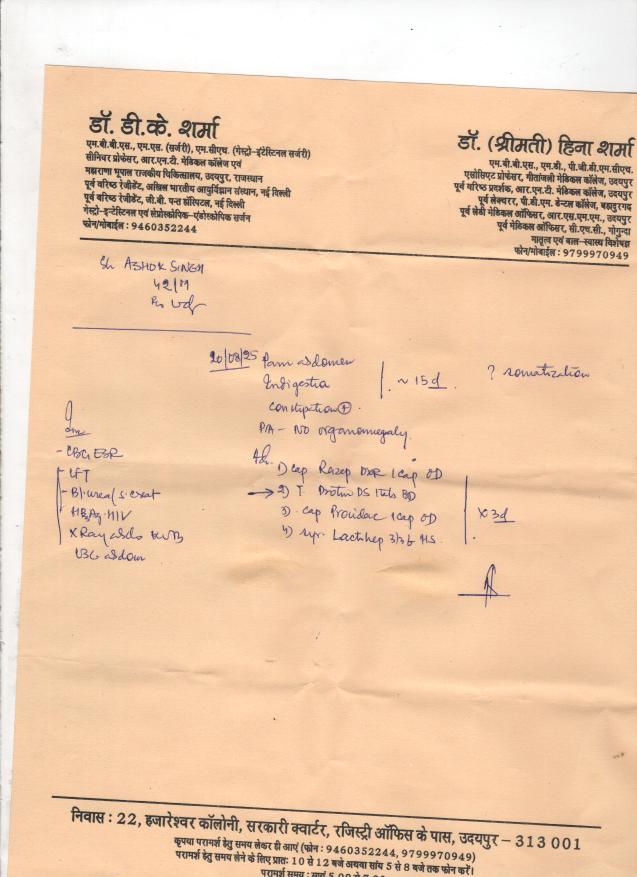 डॉ. डी.के. शर्मा
एम.बी.बी.एस., एम.एस. (सर्जरी), एम.सीएच. (गेस्ट्रो-इंटेस्टिनल सर्जरी)
सीनियर प्रोफेसर, आर.एन.टी. मेडिकल कॉलेज एवं
महाराणा भूपाल राजकीय चिकित्सालय, उदयपुर, राजस्थान
पूर्व वरिष्ठ रेजीडेंट, अखिल भारतीय आयुर्विज्ञान संस्थान, नई दिल्ली
पूर्व वरिष्ठ रेजीडेंट, जी.बी. पन्त हॉस्पिटल, नई दिल्ली
गेस्ट्रो-इन्टेस्टिनल एवं लेप्रोस्कोपिक-एंडोस्कोपिक सर्जन
फोन/मोबाईल : 9460352244
डॉ. (श्रीमती) हिना शर्मा
एम.बी.बी.एस., एम.डी., पी.जी.डी.एम.सीएच.
एसोसिएट प्रोफेसर, गीतांजली मेडिकल कॉलेज, उदयपुर
पूर्व वरिष्ठ प्रदर्शक, आर.एन.टी. मेडिकल कॉलेज, उदयपुर
पूर्व लेक्चरर, पी.डी.एम. डेन्टल कॉलेज, बहादुरगढ़
पूर्व लेडी मेडिकल ऑफिसर, आर.एस.एम.एम., उदयपुर
पूर्व मेडिकल ऑफिसर, सी.एच.सी., गोगुन्दा
मातृत्व एवं बाल-स्वास्थ्य विशेषज्ञ
फोन/मोबाईल : 9799970949
Sh ASHOK SINGH
42/M
20/08/25 Pain abdomen
Indigestia ~ 15d. ? somatization
Constipation ⊕.
P/A - NO organomegaly.
Inv
- CBC, ESR
- LFT
- Bl. urea/ s. creat
HBsAg. HIV
X Ray abdo KUB
USG abdom
Adv.
1) cap Razep DSR 1 cap OD
→ 2) T. Drotin DS 1 tab BD
3). cap Providac 1 cap OD x 3d
4) syr. Lactihep HS.
निवास : 22, हजारेश्वर कॉलोनी, सरकारी क्वार्टर, रजिस्ट्री ऑफिस के पास, उदयपुर - 313 001
कृपया परामर्श हेतु समय लेकर ही आएं (फोन : 9460352244, 9799970949)
परामर्श हेतु समय लेने के लिए प्रातः 10 से 12 बजे अथवा सांय 5 से 8 बजे तक फोन करें।
परामर्श समय : सायं 5.00 से